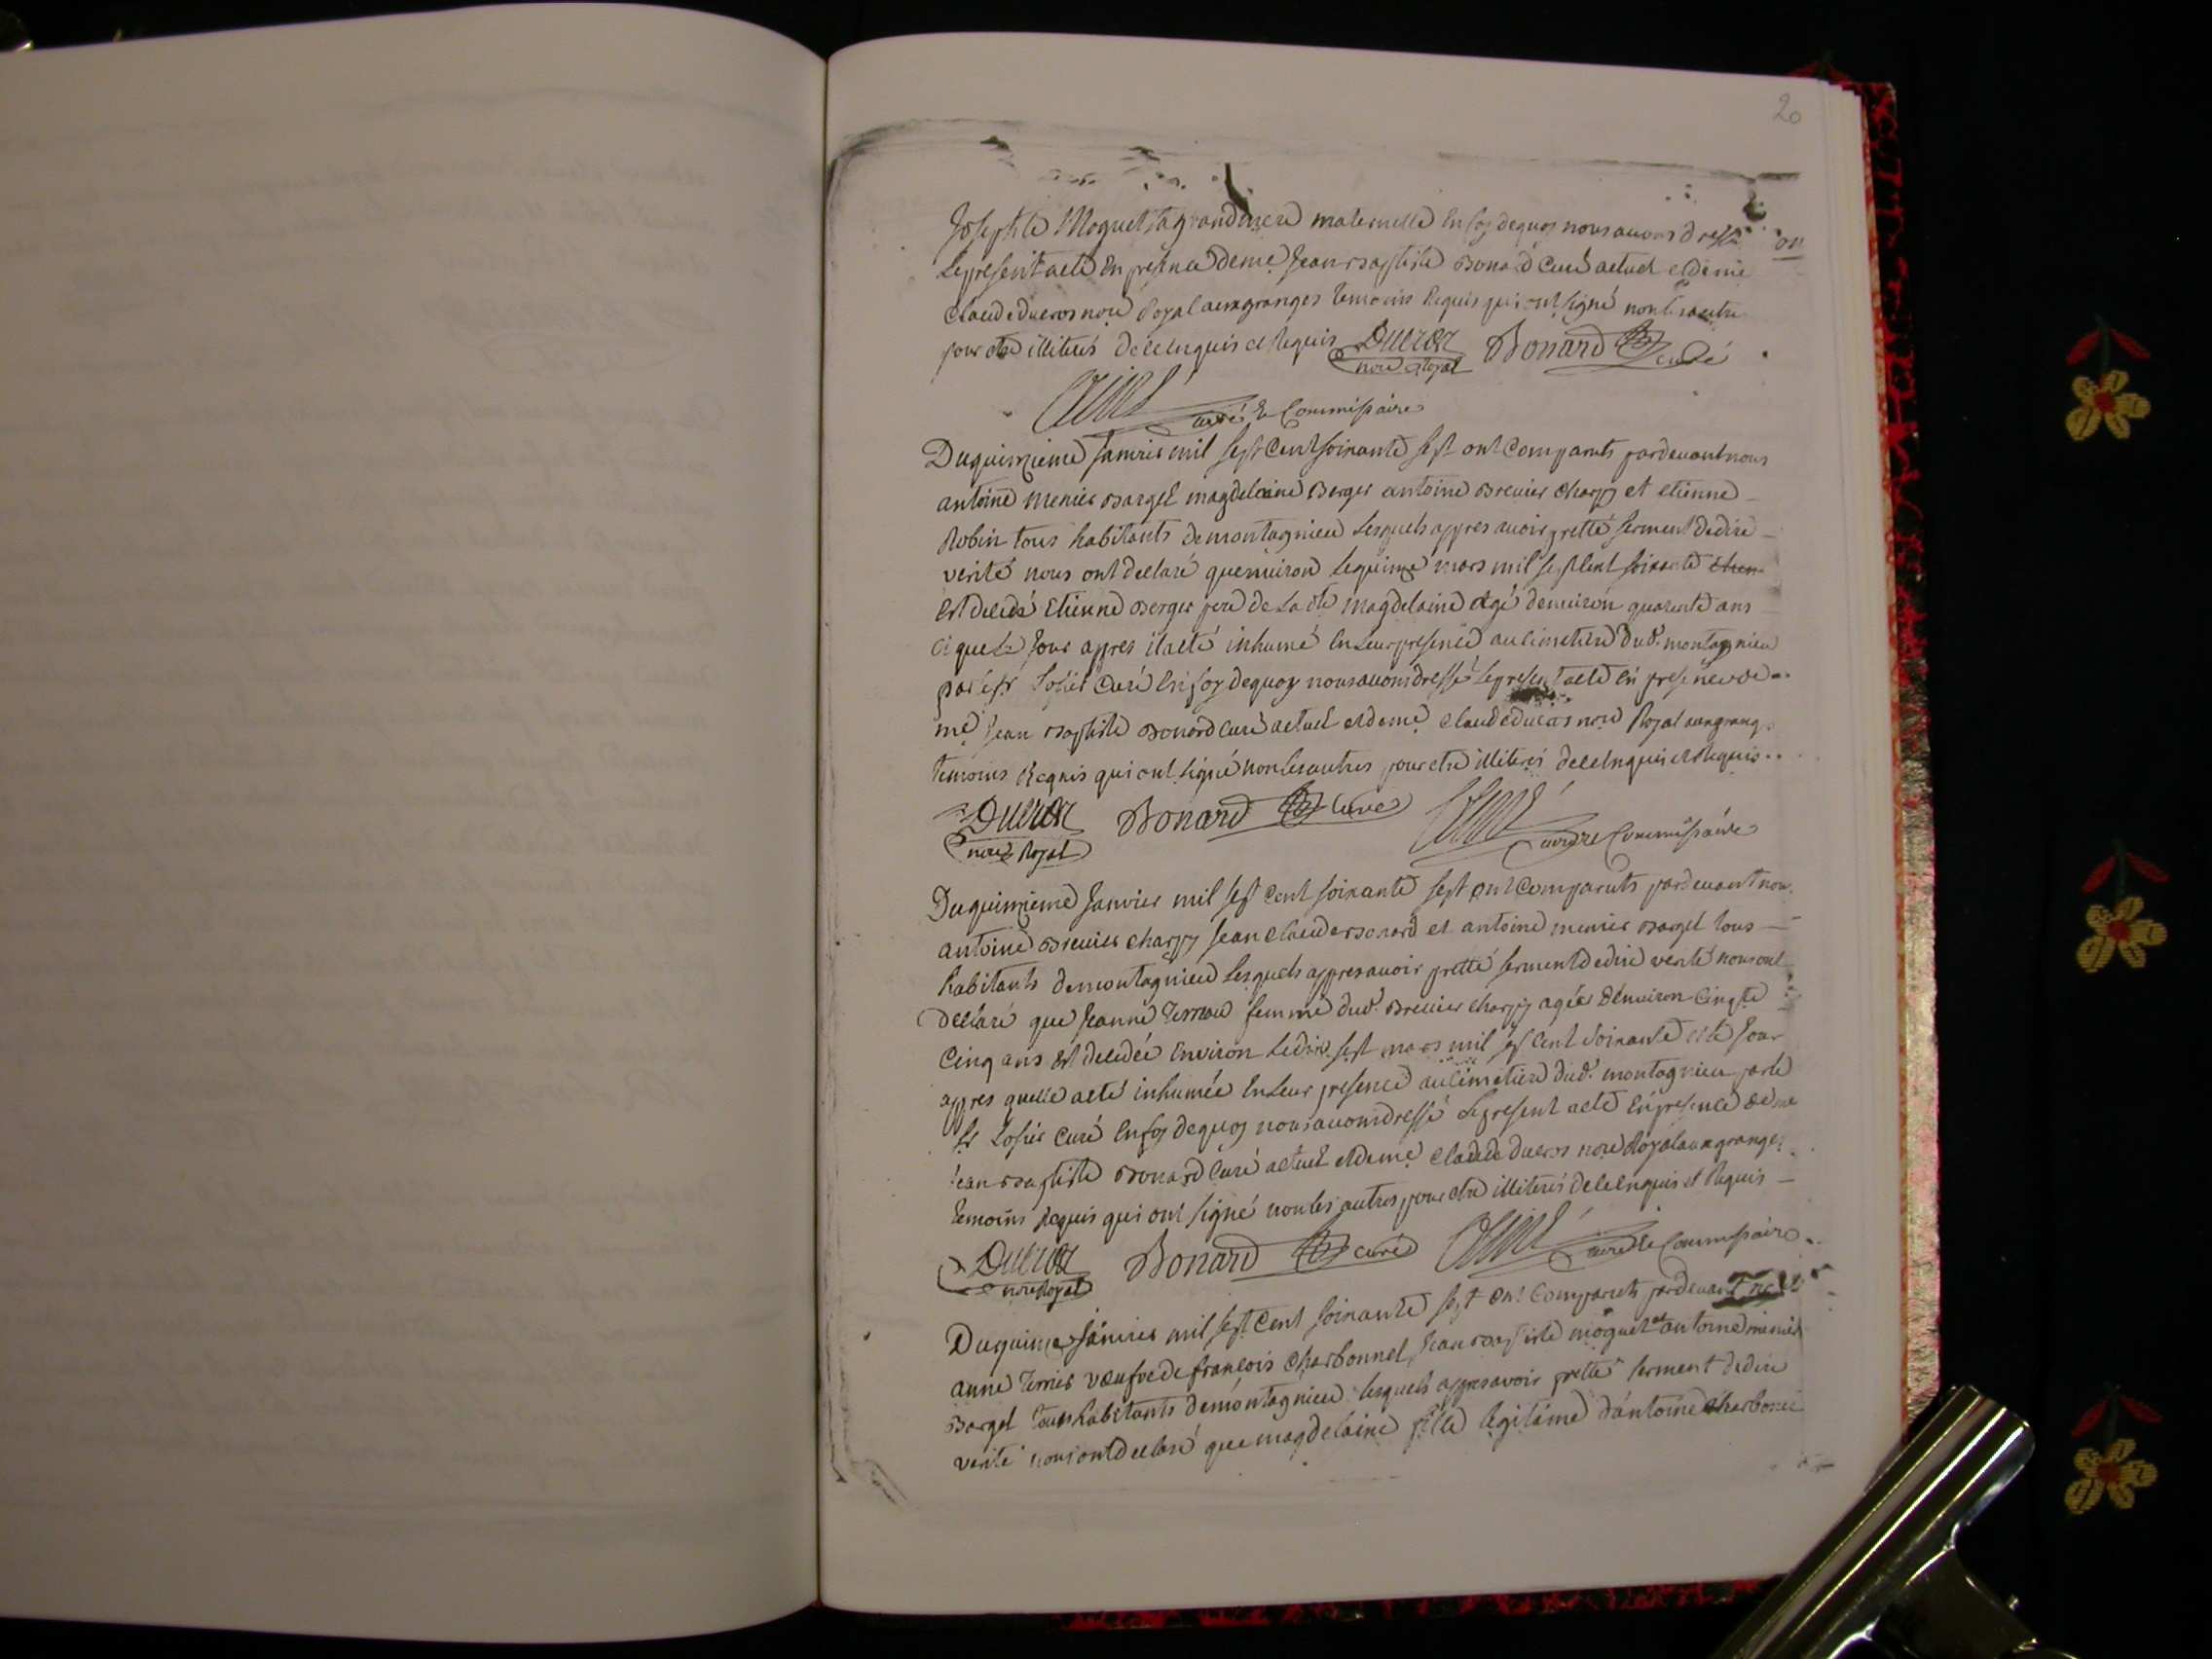 20
Josephte Moguet sa grand mere maternelle en foy dequoy nous avons dressé
le present acte en presence de me Jean Baptiste Bonard curé actuel et de me
Claude ducros nore Royal aux granges temoins requis qui ont signé non les autres
pour etre illiterés de ce enquis et requis Ducros Bonard curé
nore Royal
curé et Commissaire
Du quinzieme Janvier mil sept cent soixante sept ont comparuts pardevant nous
antoine menier Bargel magdelaine Berger antoine Brevier charpy et etienne
Robin tous habitants de montagnieu lesquels appres avoir pretté serment de dire
verité nous ont declaré quenviron le quinze mars mil sept cent soixante
est decedé Etienne Berger pere de la dte magdelaine agé denviron quarente ans
et que le jour appres il a eté inhumé en leur presence au cimetiere dud. montagnieu
par le sr Losier curé en foy dequoy nous avons dressé le present acte en presence de
me Jean Baptiste Bonard curé actuel et de me claude ducros nore Royal aux grang.
temoins Requis qui ont signé non les autres pour etre illiterés de ce enquis et Requis
Ducros Bonard curé
nore Royal curé et Commissaire
Du quinzieme Janvier mil sept cent soixante sept ont comparuts pardevant nou.
antoine Brevier charpy Jean claude Bonard et antoine menier Bargel tous
habitants de montagnieu lesquels appres avoir pretté serment de dire verité nous ont
declaré que Jeanne femme dud. Brevier charpy agée denviron cinqte
cinq ans est decedée environ le dix sept mars mil sept cent soixante et le jour
appres quelle a eté inhumée en leur presence au cimetiere dud. montagnieu par le
sr Losier curé en foy dequoy nous avons dressé le present acte en presence de me
Jean Baptiste Bonard curé actuel et de me claude ducros nore Royal aux granges
temoins Requis qui ont signé non les autres pour etre illiterés de ce enquis et Requis
Ducros Bonard curé curé et Commissaire
nore Royal
Du quinze Janvier mil sept cent soixante sept ont comparuts pardevant nous
anne Terrier veufve de francois charbonnel, Jean Baptiste moguet et antoine menier
Bargel tous habitants de montagnieu lesquels appres avoir pretté serment de dire
verité nous ont declaré que magdelaine fille legitime d'antoine charbonel